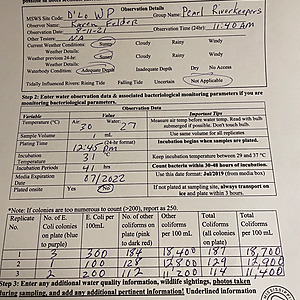 Observation Details
MSWS Site Code: D'Lo WP Group Name: Pearl Riverkeepers
Observer Name: Karen Felder
Observation Date: 8-11-21 Observation Time (24hr): 11:40 AM
Other Testers: NA
Current Weather Conditions: Sunny Cloudy Rainy Windy
Weather Details:
Sunny Cloudy Rainy Windy
Weather Details:
Waterbody Condition: Adequate Depth Inadequate Depth Dry No Access
Tidally Influenced Rivers: Rising Tide Falling Tide Uncertain Not Applicable
Step 2: Enter water observation data & associated bacteriological monitoring parameters if you are
monitoring bacteriological parameters.
Observation Data
Variable Value Important Tips
Temperature (°C) Air: 30 Water: 27 Measure air temp before water temp. Read with bulb
submerged if possible. Don't touch bulb.
Sample Volume mL Use same volume for all replicates
Plating Time 12:45 pm (24-hr format) Incubation begins when samples are plated.
Incubation Temperature 31 °C Keep incubation temperature between 29 and 37 °C
Incubation Periods 41 hrs Count bacteria within 30-48 hours of incubation.
Media Expiration Date 07/2022 Use this date format: Jul/2019 (from media box)
Plated onsite Yes No If not plated at sampling site, always transport on
ice and plate within 3 hours.
*Note: If colonies are too numerous to count (>200), report as 250.
Replicate No. No. of E. Coli colonies on plate (blue to purple) E. Coli per 100mL No. of other coliforms on plate (pink to dark red) Other coliforms per 100 mL Total Coliforms (all colonies on plate) Total coliforms per 100 mL
1 3 300 184 18,400 187 18,700
2 1 100 128 12,800 129 12,900
3 2 200 112 11,200 114 11,400
Step 3: Enter any additional water quality information, wildlife sightings, photos taken
during sampling, and add any additional pertinent information! Underlined